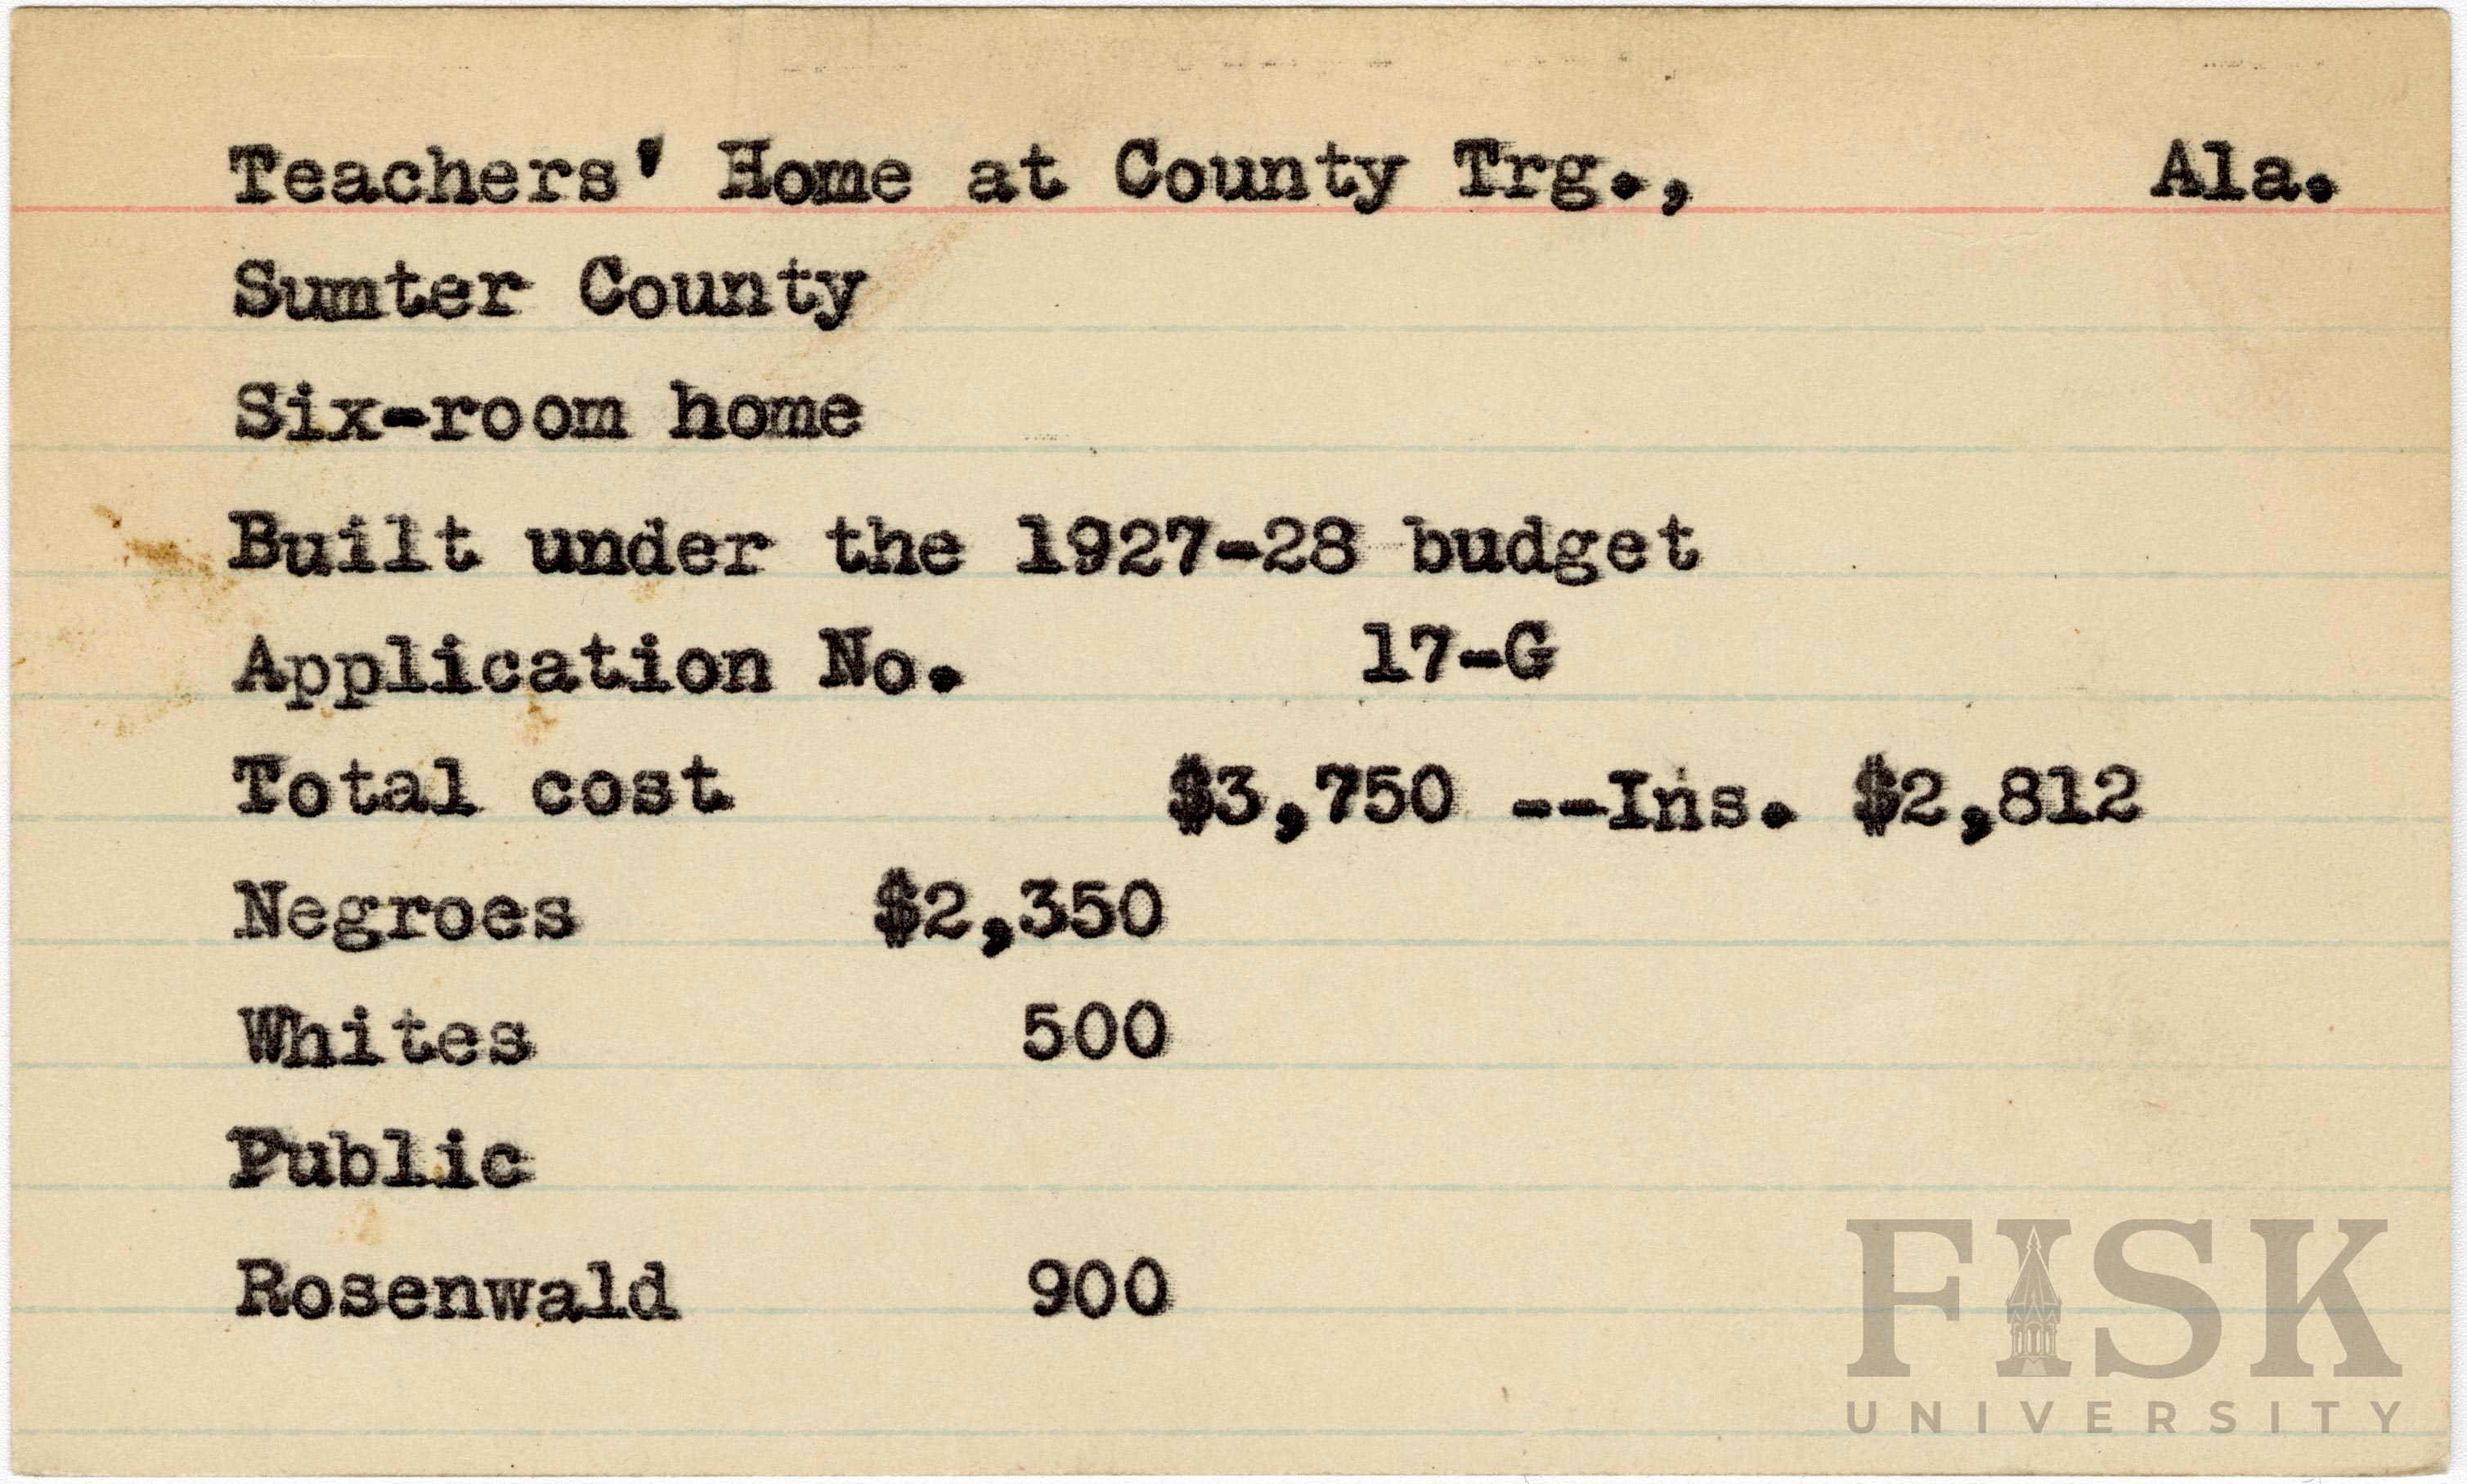 Teachers' Home at County Trg., Ala.
Sumter County
Six-room home
Built under the 1927-28 budget
Application No. 17-G
Total cost $3,750 --Ins. $2,812
Negroes $2,350
Whites 500
Public
Rosenwald 900
FISK
UNIVERSITY